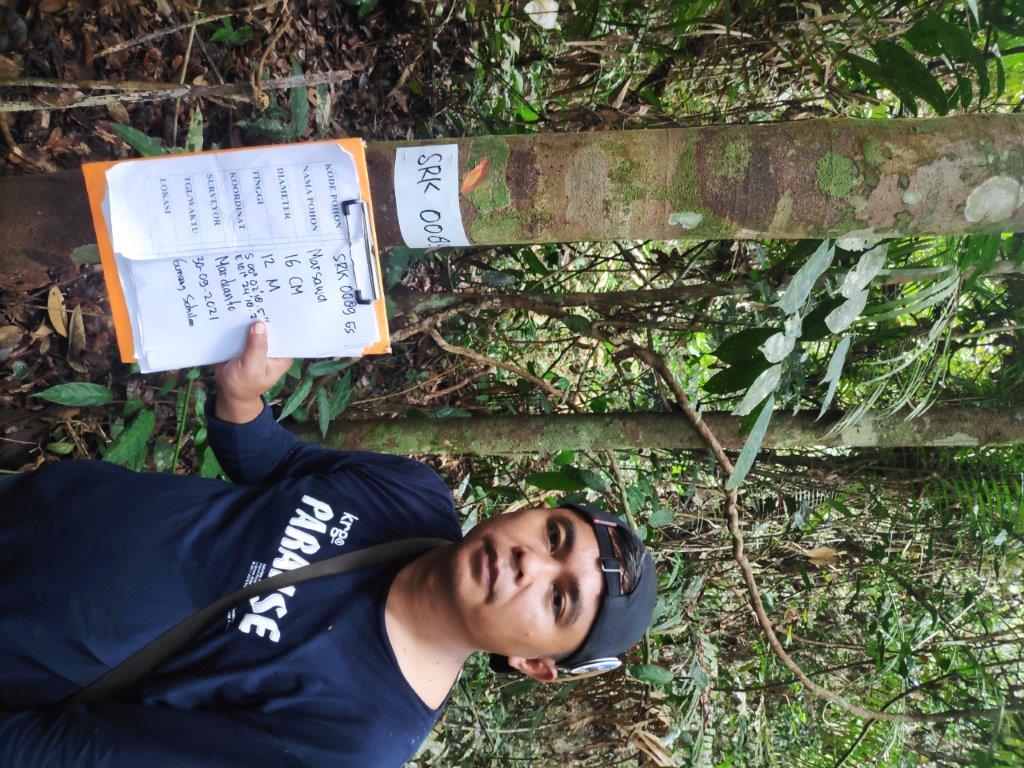 SRK 0089
KODE POHON SRK 0089 ES
NAMA POHON Marsawa
DIAMETER 16 CM
TINGGI 12 M
KOORDINAT S 00° 02' 10.5"
E 101° 24' 10.2"
SURVEYOR Mardianto
TGL/WAKTU 30-09-2021
LOKASI Gunung Sahilan
krgo
PARADISE